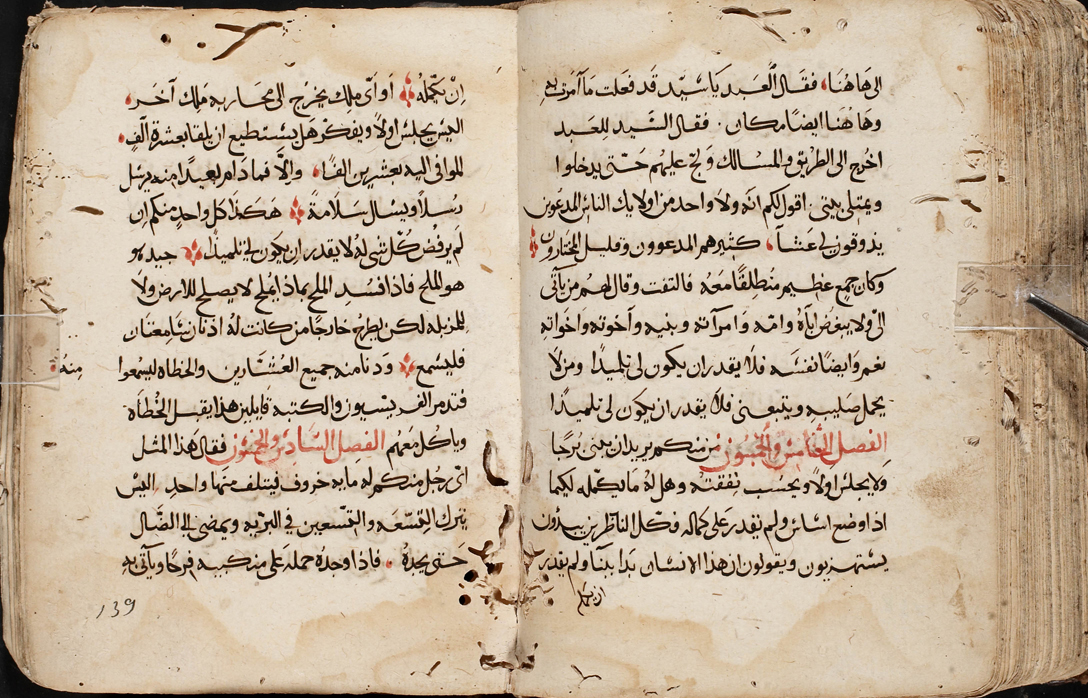 الى هاهنا، فقال العبد يا سيد قد فعلت ما آمرت به
وها هنا ايضا مكان. فقال السيد للعبد
اخرج الى الطريق والمسالك ولج عليهم حتى يدخلوا
ويمتلى بيتى. اقول لكم انه ولا واحد من اولايك الناس المدعوين
يذوقون لى عشآ، كثير هم المدعوون وقليل المختارون
وكان جمع عظيم منطلقا معه فالتفت وقال لهم من يآتى
الىّ ولا يبغض اباه وامه وامرآته وبنيه وآخوته واخواته
نعم وايضا نفسه فلا يقدر ان يكون لى تلميدا ومن لا
يحمل صليبه ويتبعنى فلا يقدر ان يكون لى تلميدا
الفصل الخامس والخمسون من منكم يريد ان يبنى برجا
ولا يجلس اولا ويحسب نفقته وهل له ما يكمله لكيما
اذا وضع اساس ولم يقدر على كماله فكل الناظرين يبدون
يستهزيون ويقولون ان هذا الانسان بدا ببنا ولم يقدر
ان يكمل
ان يكمله، او اى ملك يخرج الى محاربة ملك آخر،
اليس يجلس اولا ويفكر هل يستطيع ان يلقا بعشرة الف،
الموافى اليه بعشرين الفا، والا فما دام بعيدا منه يرسل
رسلا ويسال سلامة هكذا كل واحد منكم ان
لم يرفض كل شى له لا يقدر ان يكون لى تلميدا جيد هو
هو الملح فاذا فسد الملح بماذا يملح لا يصلح للارض ولا
للمزبله لكن يطرح خارجا من كانت له اذنان سامعتان
فليسمع ودنا منه جميع العشارين والخطاه ليسمعوا
منه
فتدمر الفريسيون والكتبه قايلين هذا يقبل الخطاه
وياكل معهم الفصل السادس والخمسون فقال هذا المثل
اى رجل منكم له مايه خروف فيتلف منها واحد اليس
يترك التسعه والتسعين فى البريه ويمضى الى الضال
حتى يجده، فاذا وجده حمله على منكبيه فرحا ويآتى به
139